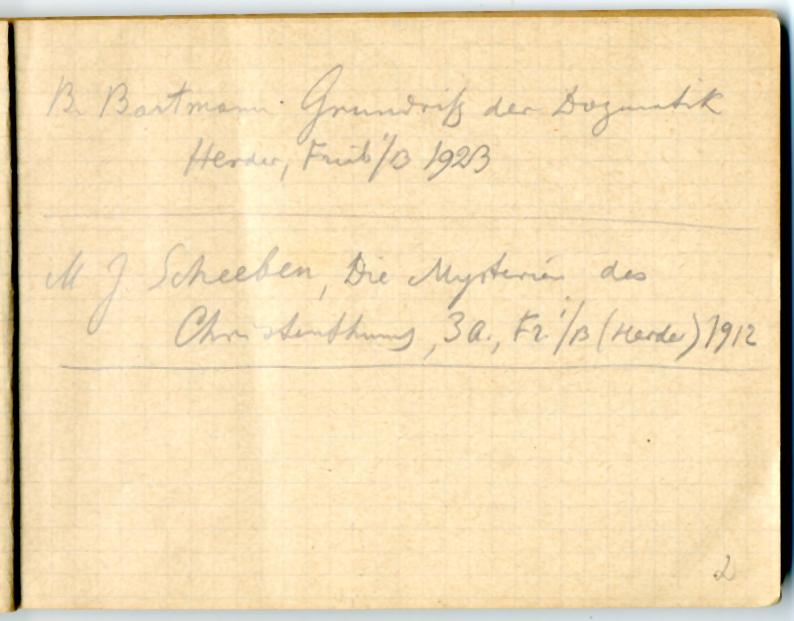 B. Bartmann. Grundriß der Dogmatik
Herder, Freib i/B 1923
M J Scheeben, Die Mysterien des
Christenthums, 3 a., Fr. i/B (Herder) 1912
2